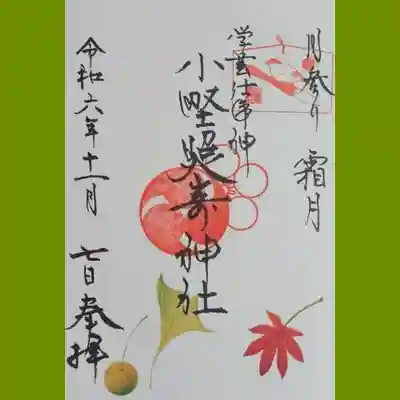 月参り 霜月
学芸仕事神
小野照崎神社
令和六年十一月 七日奉拝